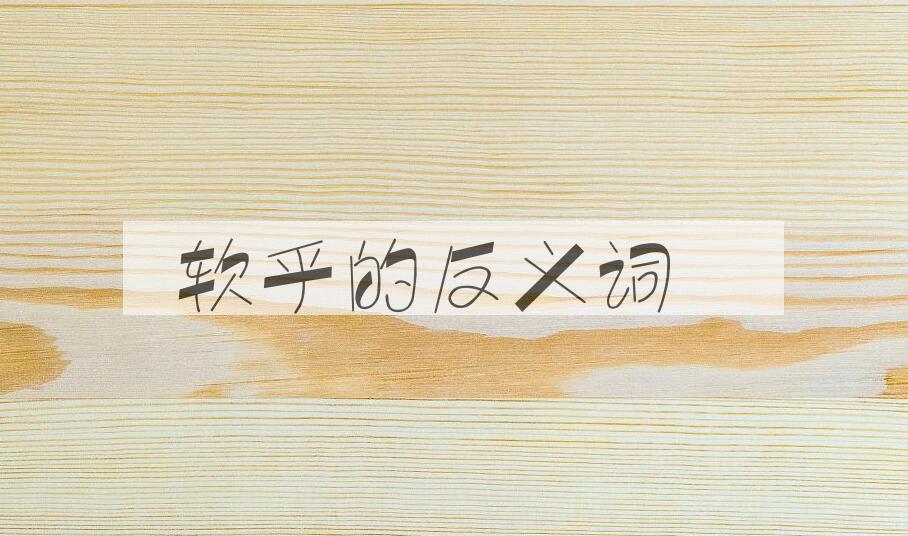 软乎的反义词